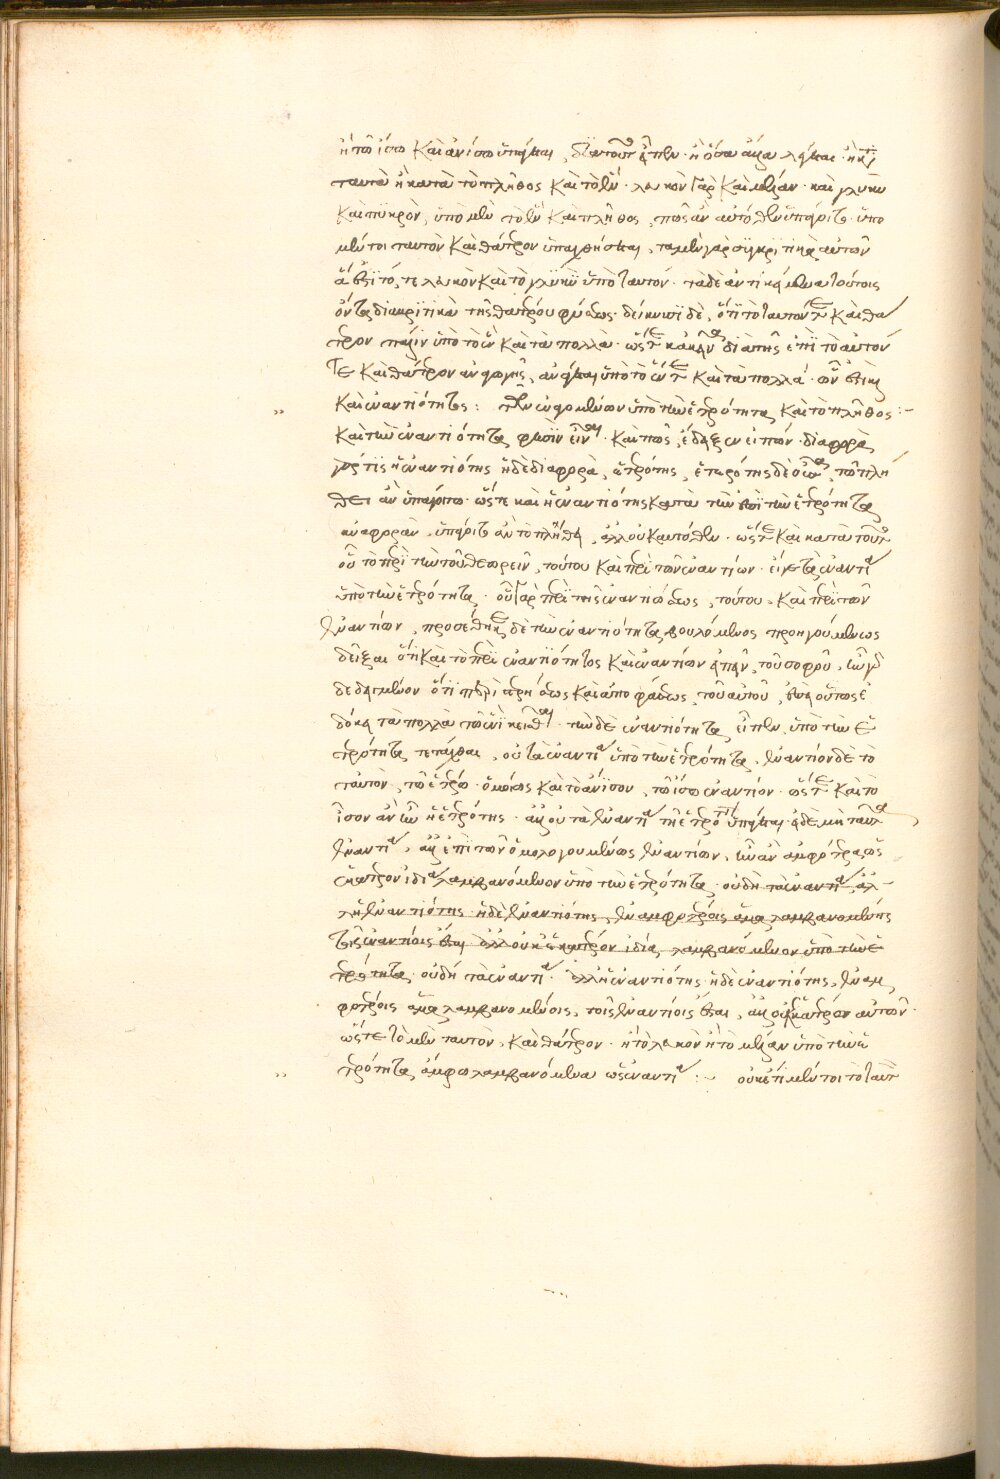 ἢ τῷ ἴσῳ καὶ ἀνίσῳ ὑπῆκται, διὰ τοῦτο εἶπεν· ἢ ὅσα ἄλλα λέγεται· ἢ κατὰ
ταυτὰ ἢ κατὰ τὸ πλῆθος καὶ τὸ ἕν· λευκὸν γὰρ καὶ μέλαν· καὶ γλυκὺ
καὶ πικρὸν, ὑπὸ μὲν τὸ ἓν καὶ πλῆθος, πῶς ἂν αὐτόθεν ὑπάγοιτο· ὑπὸ
μέντοι ταυτὸν καὶ θάτερον ὑπαχθήσεται, τὰ μὲν γὰρ συγκριτικὰ αὐτῶν
ἅ ἐστι τό, τε λευκὸν καὶ τὸ γλυκὺ ὑπὸ ταυτόν· τὰ δὲ ἀντικείμενα τούτοις
ὄντα διακριτικὰ τῆς θατέρου φύσεως· δείκνυσι δὲ, ὅτι τὸ ταυτόν τε καὶ θά
τερον πάλιν ὑπὸ τὸ ἓν καὶ τὰ πολλά· ὥστε κἀκεῖνα διὰ τῆς ἐπὶ τὸ αὐτόν
τε καὶ θάτερον ἀναγωγῆς, ἀνῆκται ὑπὸ τὸ ἕν τε καὶ τὰ πολλά· ὧν ἐστι καὶ
καὶ ἐναντιότητες : τῶν ἀναγομένων ὑπὸ τὴν ἑτερότητα καὶ τὸ πλῆθος :-
καὶ τὴν ἐναντιότητα φησὶν εἶναι· καὶ πῶς, ἔδειξεν εἰπών· διαφορὰ
γάρ τις ἡ ἐναντιότης ἡ δὲ διαφορὰ, ἑτερότης, ἑτερότης δὲ οὖσα, τῷ πλή
θει ἂν ὑπάγοιτο· ὥστε καὶ ἡ ἐναντιότης κατὰ τὴν ἐπὶ τὴν ἑτερότητα
ἀναφορὰν, ὑπάγοιτο ἂν τὸ πλήθει, ἀλλ' οὐκ αὐτόθεν· ὥστε καὶ κατὰ τοῦτο
οὗ τὸ περὶ τὴν τοῦ θεωρεῖν, τούτου καὶ περὶ τῶν ἐναντίων· εἴγε τὰ ἐναντία
ὑπὸ τὴν ἑτερότητα· οὗ γὰρ περὶ τῆς ἐναντιώσεως, τούτου καὶ περὶ τῶν
ἐναντίων, προσέθηκε δὲ τὴν ἐναντιότητα βουλόμενος προηγουμένως
δεῖξαι ὅτι καὶ τὸ περὶ ἐναντιότητος καὶ ἐναντίων εἰπεῖν, τοῦ σοφοῦ, ἦν γὰρ
δεδειγμένον ὅτι περὶ στερήσεως καὶ ἀποφάσεως, τοῦ αὐτοῦ, ἐπεὶ οὕτως ἐ
δόκει τὰ πολλὰ τῷ ἑνὶ κεῖσθαι· τὴν δὲ ἐναντιότητα εἶπεν, ὑπὸ τὴν ἑ
τερότητα τετάχθαι, οὐ τὰ ἐναντία ὑπὸ τὴν ἑτερότητα, ἐναντίον δὲ τὸ
ταυτὸν, τῷ ἑτέρῳ· ὁμοίως καὶ τὸ ἄνισον, τῷ ἴσῳ ἐναντίον· ὥστε καὶ τὸ
ἴσον ἂν ἦν ἡ ἑτερότης· ἀλλ' οὐ τὰ ἐναντία τῇ ἑτερότητι ὑπῆκται· εἰ δὲ μὴ ταῦτα
ἐναντία, ἀλλ' ἐπὶ τῶν ὁμολογουμένως ἐναντίων, ἦν ἂν ἀμφότερα, ὡς
ἑκάτερον ἰδίᾳ λαμβανόμενον ὑπὸ τὴν ἑτερότητα· οὐδὴ τὰ ἐναντία, ἀλ-
λ' ἡ ἐναντιότης· ἡ δὲ ἐναντιότης, ἐν ἀμφοτέροις ἅμα λαμβανομένοις
τοῖς ἐναντίοις ἐστὶ, ἀλλ' οὐκ ἑκάτερον ἰδίᾳ λαμβανόμενον ὑπὸ τὴν ἑ
τερότητα· οὐδὴ τὰ ἐναντία· ἀλλ' ἡ ἐναντιότης· ἡ δὲ ἐναντιότης, ἐν ἀμ
φοτέροις ἅμα λαμβανομένοις, τοῖς ἐναντίοις ἐστὶ, ἀλλ' οὐχ ἑκάτερον αὐτῶν·
ὥστε τὸ μὲν ταυτὸν, καὶ θάτερον· ἢ τὸ λευκὸν ἢ τὸ μέλαν ὑπὸ τὴν ἑ
τερότητα, ἄμφω λαμβανόμενα ὡς ἐναντία :- οὐκέτι μέντοι τὸ ταυτὸ